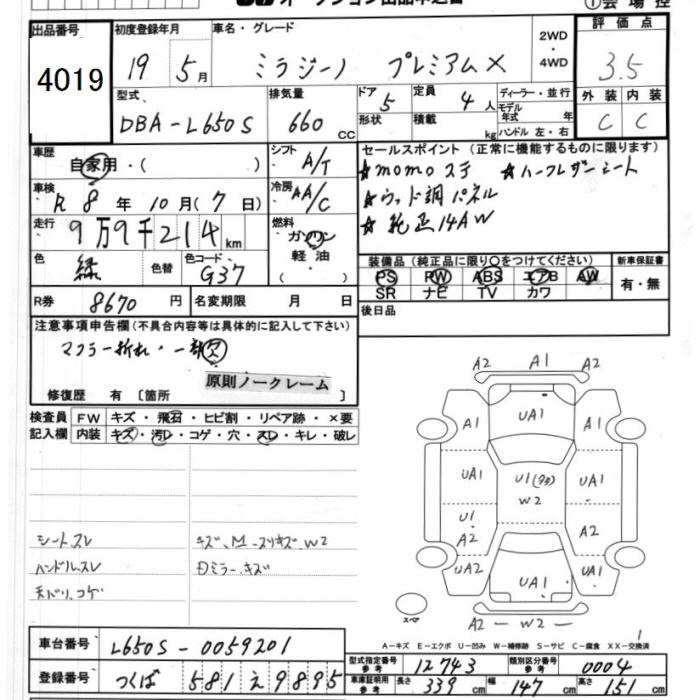 4019
出品番号
初度登録年月
車名・グレード
19 5月
ミラジーノ プレミアムX
2WD
・
4WD
評価点
3.5
型式
DBA-L650S
排気量
660 cc
ドア 5
形状
定員 4 人
積載 kg
ディーラー・並行
モデル年式 年
ハンドル 左・右
外装 内装
C C
車歴
自家用・( )
シフト
A/T
車検
R 8年 10月( 7日)
冷房
AA/C
走行
9万9千214km
燃料
ガソリン
軽油
( )
色
緑
色替
色コード
G37
R券 8670円
名変期限 月 日
セールスポイント(正常に機能するものに限ります)
★momoステ ★ハーフレザーシート
★ウッド調パネル
★純正14AW
装備品(純正品に限り○をつけてください)
PS PW ABS エアB AW
SR ナビ TV カワ
新車保証書
有・無
後日品
注意事項申告欄(不具合内容等は具体的に記入して下さい)
マフラー折れ・一部欠
原則ノークレーム
修復歴 有〔箇所 〕
検査員 FW キズ・飛石・ヒビ割・リペア跡・×要
記入欄 内装 キズ・汚レ・コゲ・穴・スレ・キレ・破レ
シートスレ
ハンドルスレ
天バリ、コゲ
キズ、M-スリキズ、W2
Dミラーキズ
A2 A1 A2
A1 UA1 A1
UA1 U1 W2 UA1
U1 A2 A2
UA2 UA1 UA1
A2 -W2-
スペア
A-キズ E-エクボ U-凹み W-補修跡 S-サビ C-腐食 XX-交換済
車台番号 L650S-0059201
登録番号 つくば 581 え 9895
型式指定番号 参考 12743
類別区分番号 参考 0004
車庫証明用 参考 長さ 339cm 幅 147cm 高さ 151cm